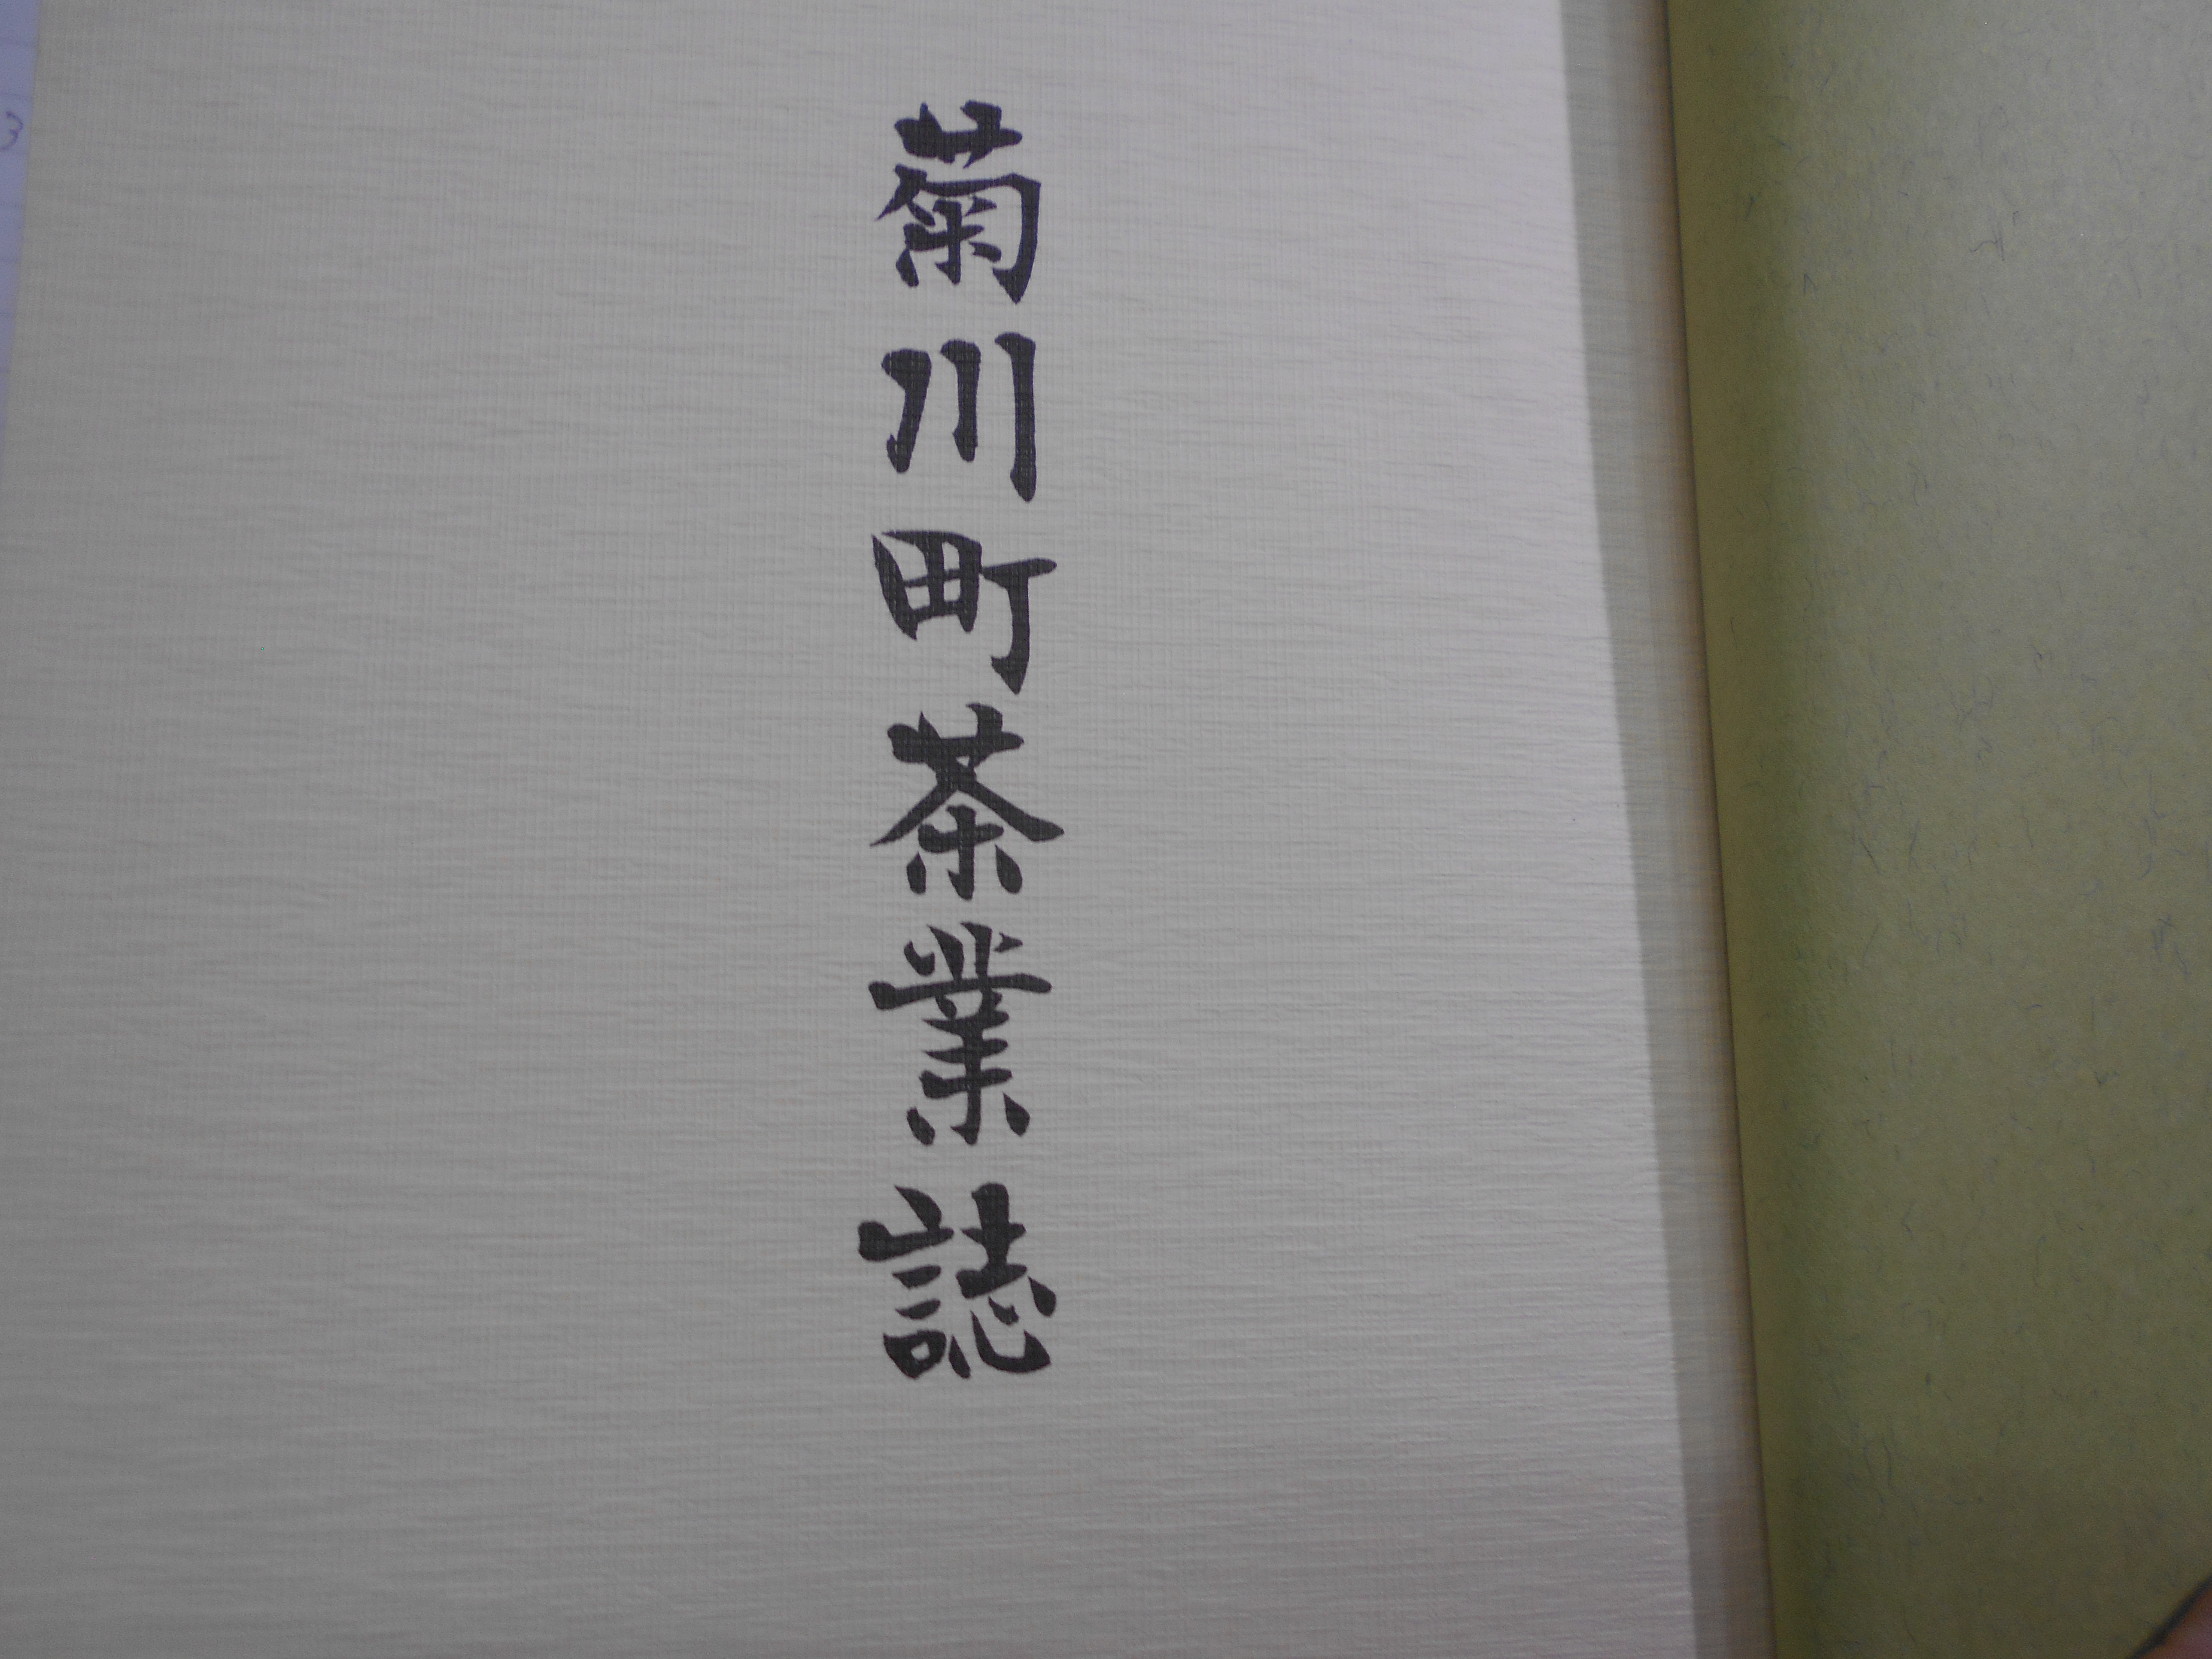 菊川町茶業誌
3